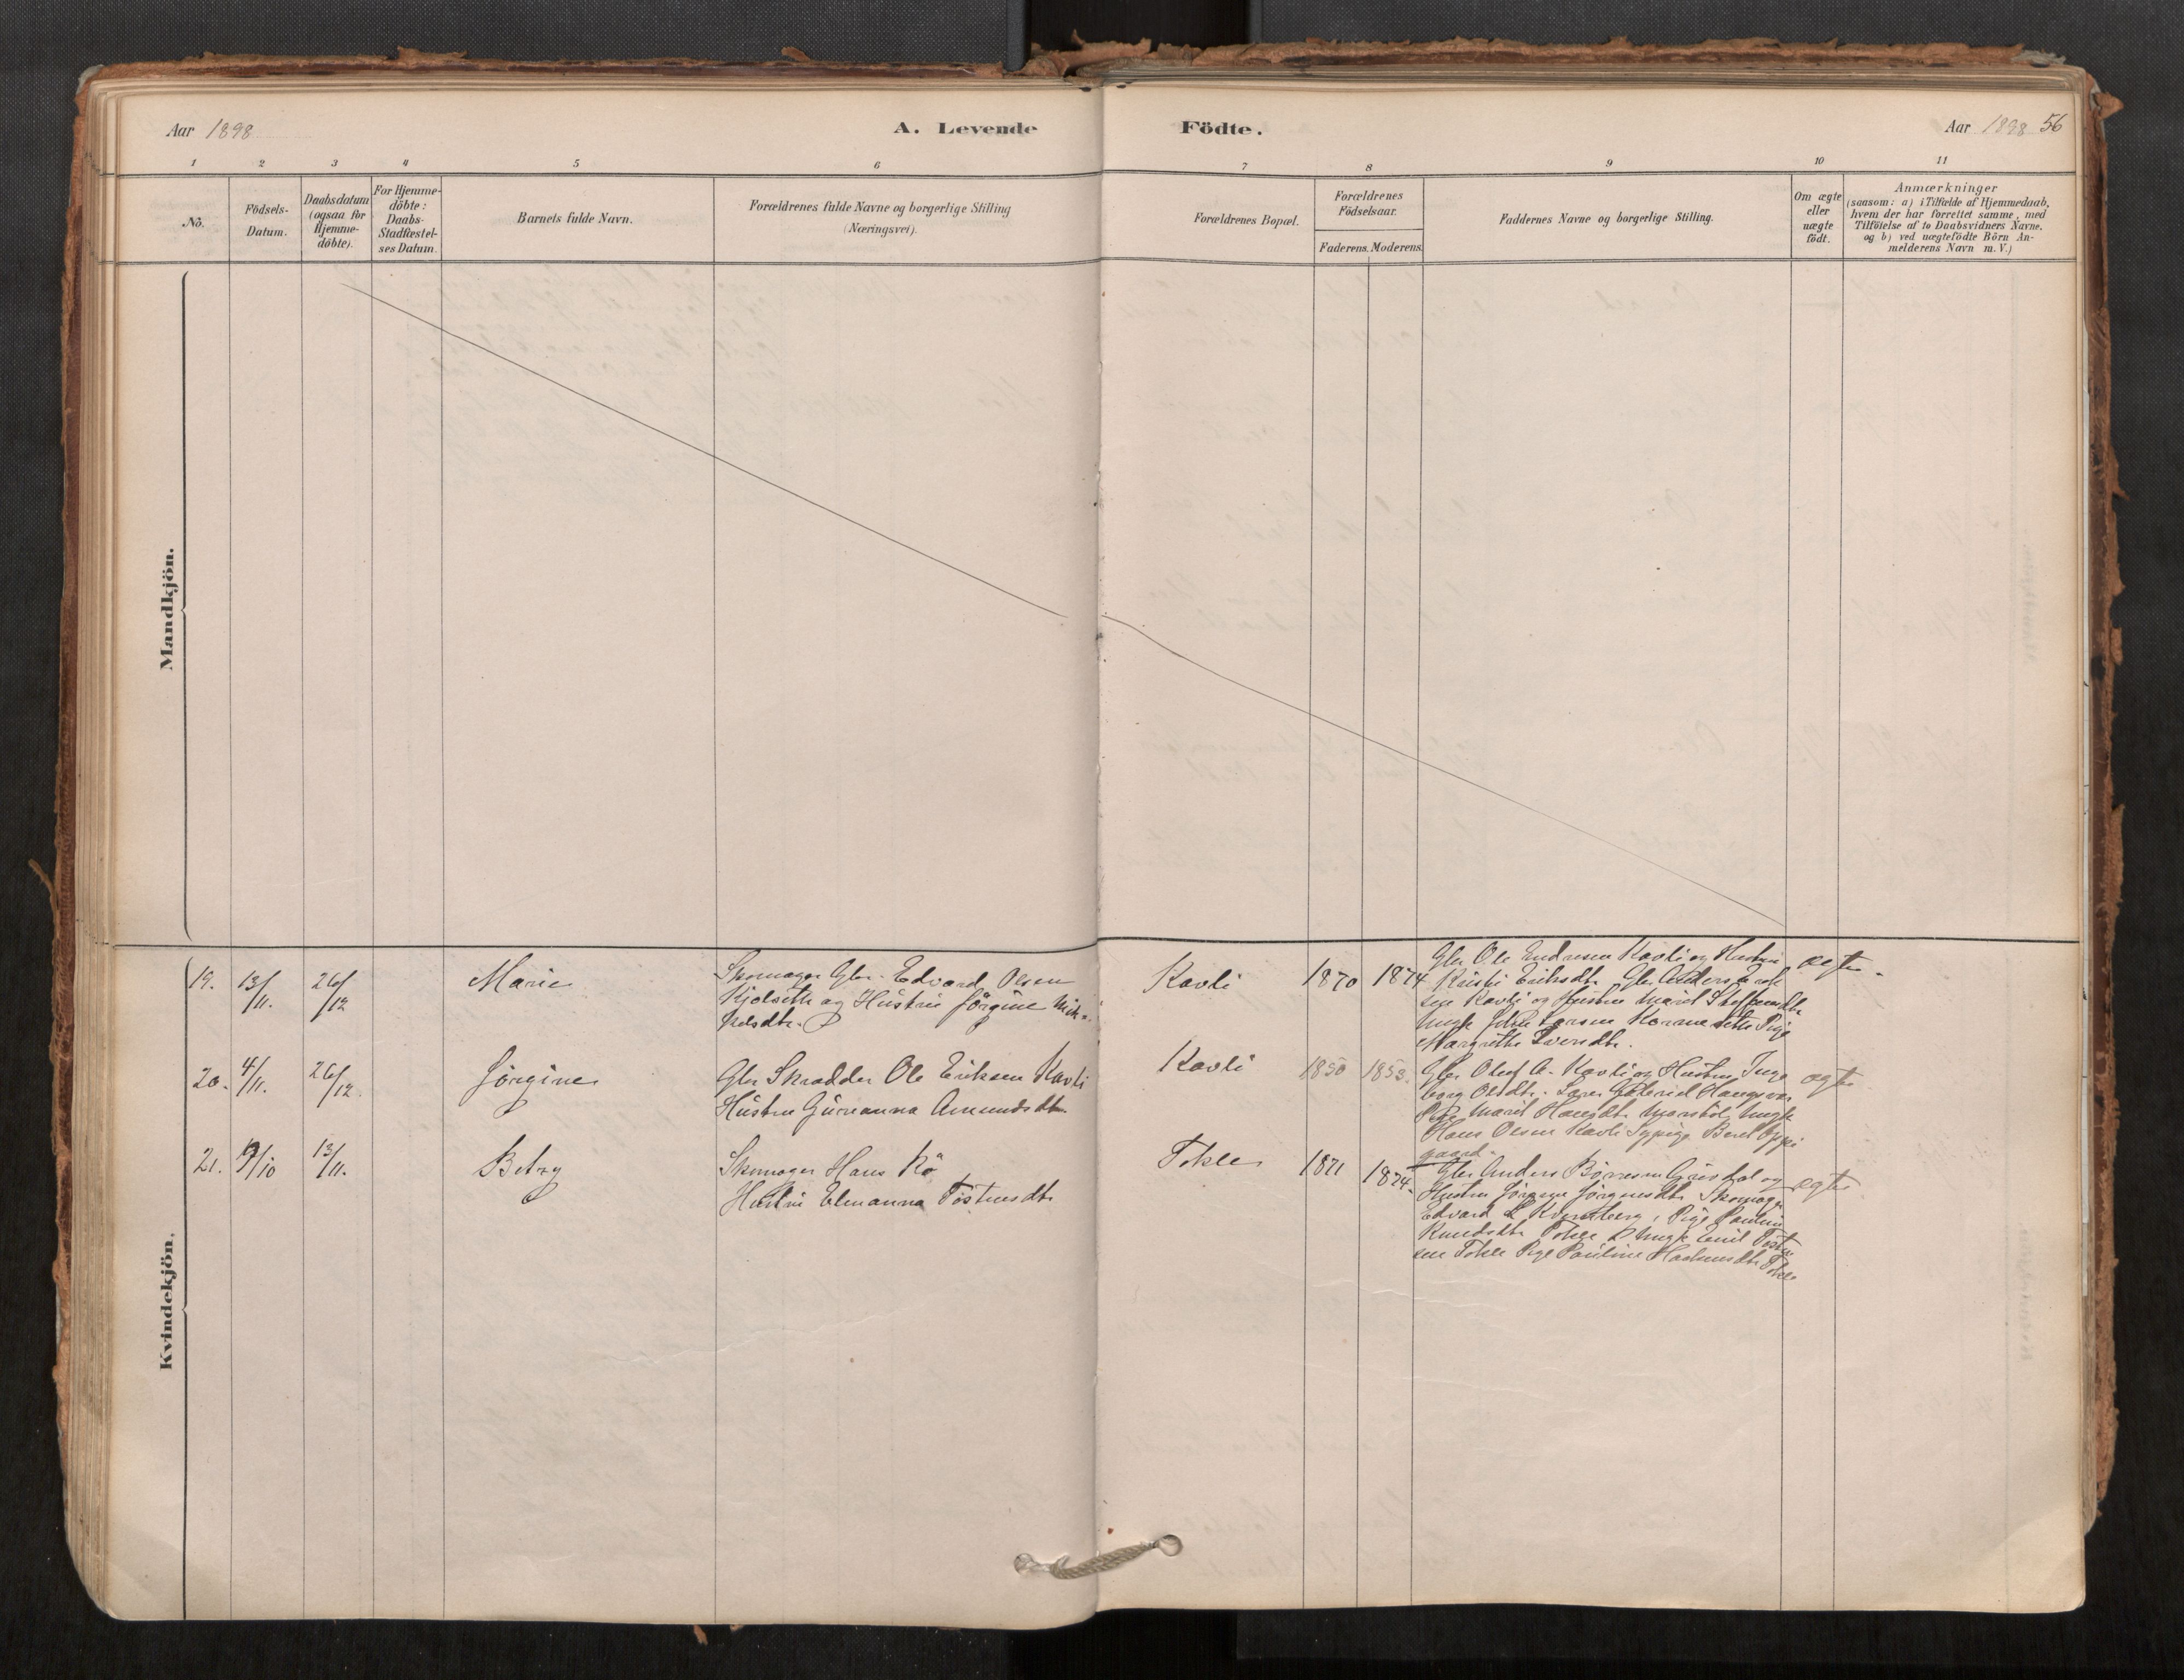 Aar 1898
A. Levende Födte.
Aar 1898 56
1 2 3 4 5 6 7 8 9 10 11
No.
Födsels-
Datum.
Daabsdatum
(ogsaa for
Hjemme-
döbte).
For Hjemme-
döbte:
Daabs-
Stadfæstel-
ses Datum.
Barnets fulde Navn.
Forældrenes fulde Navne og borgerlige Stilling
(Næringsvei).
Forældrenes Bopæl.
Forældrenes
Födselsaar.
Faderens. Moderens.
Faddernes Navne og borgerlige Stilling.
Om ægte
eller
uægte
födt.
Anmærkninger
(saasom: a) i Tilfælde af Hjemmedaab,
hvem der har forrettet samme, med
Tilföielse af to Daabsvidners Navne.
og b) ved uægtefödte Börn An-
melderens Navn m. V.)
Mandkjön.
Kvindekjön.
19. 13/11. 26/12 Marie
Skomager Gbr. Edvard Olsen
Kjolseth og Hustru Jörgine Mik-
kelsdtr.
Kavli 1870 1874
Gbr Ole Endresen Kavli og Hustru
Kristi Eriksdtr. Gbr Anders Erik
sen Kavli og Hustru Marit Steffensdtr
Ungk Larsen Pige
Margrethe Iversdtr.
ægte.
20. 4/11. 26/12. Jörgine
Gbr Skrædder Ole Eriksen Kavli
Hustru Gurianna Amundsdtr.
Kavli 1850 1853.
Gbr Oluf A. Kavli og Hustru Inge
borg Olsdtr.
Pige Marit Hansdtr Ungk
Hans Olsen Kavli Sypige Beret Oppi
gaard.
ægte
21. 19/10 13/11. Betzy
Skomager Hans Rö
Hustru Elmanna Tostensdtr
Tokle 1871 1874.
Gbr Anders Börresen og
Hustru Jörgine Jörgensdtr Skomag
Edvard L Kvernberg, Pige Pauline
Knudsdtr Tokle Ungk Emil Tosten
sen Tokle Pige Pauline Haakensdtr Tokle
ægte